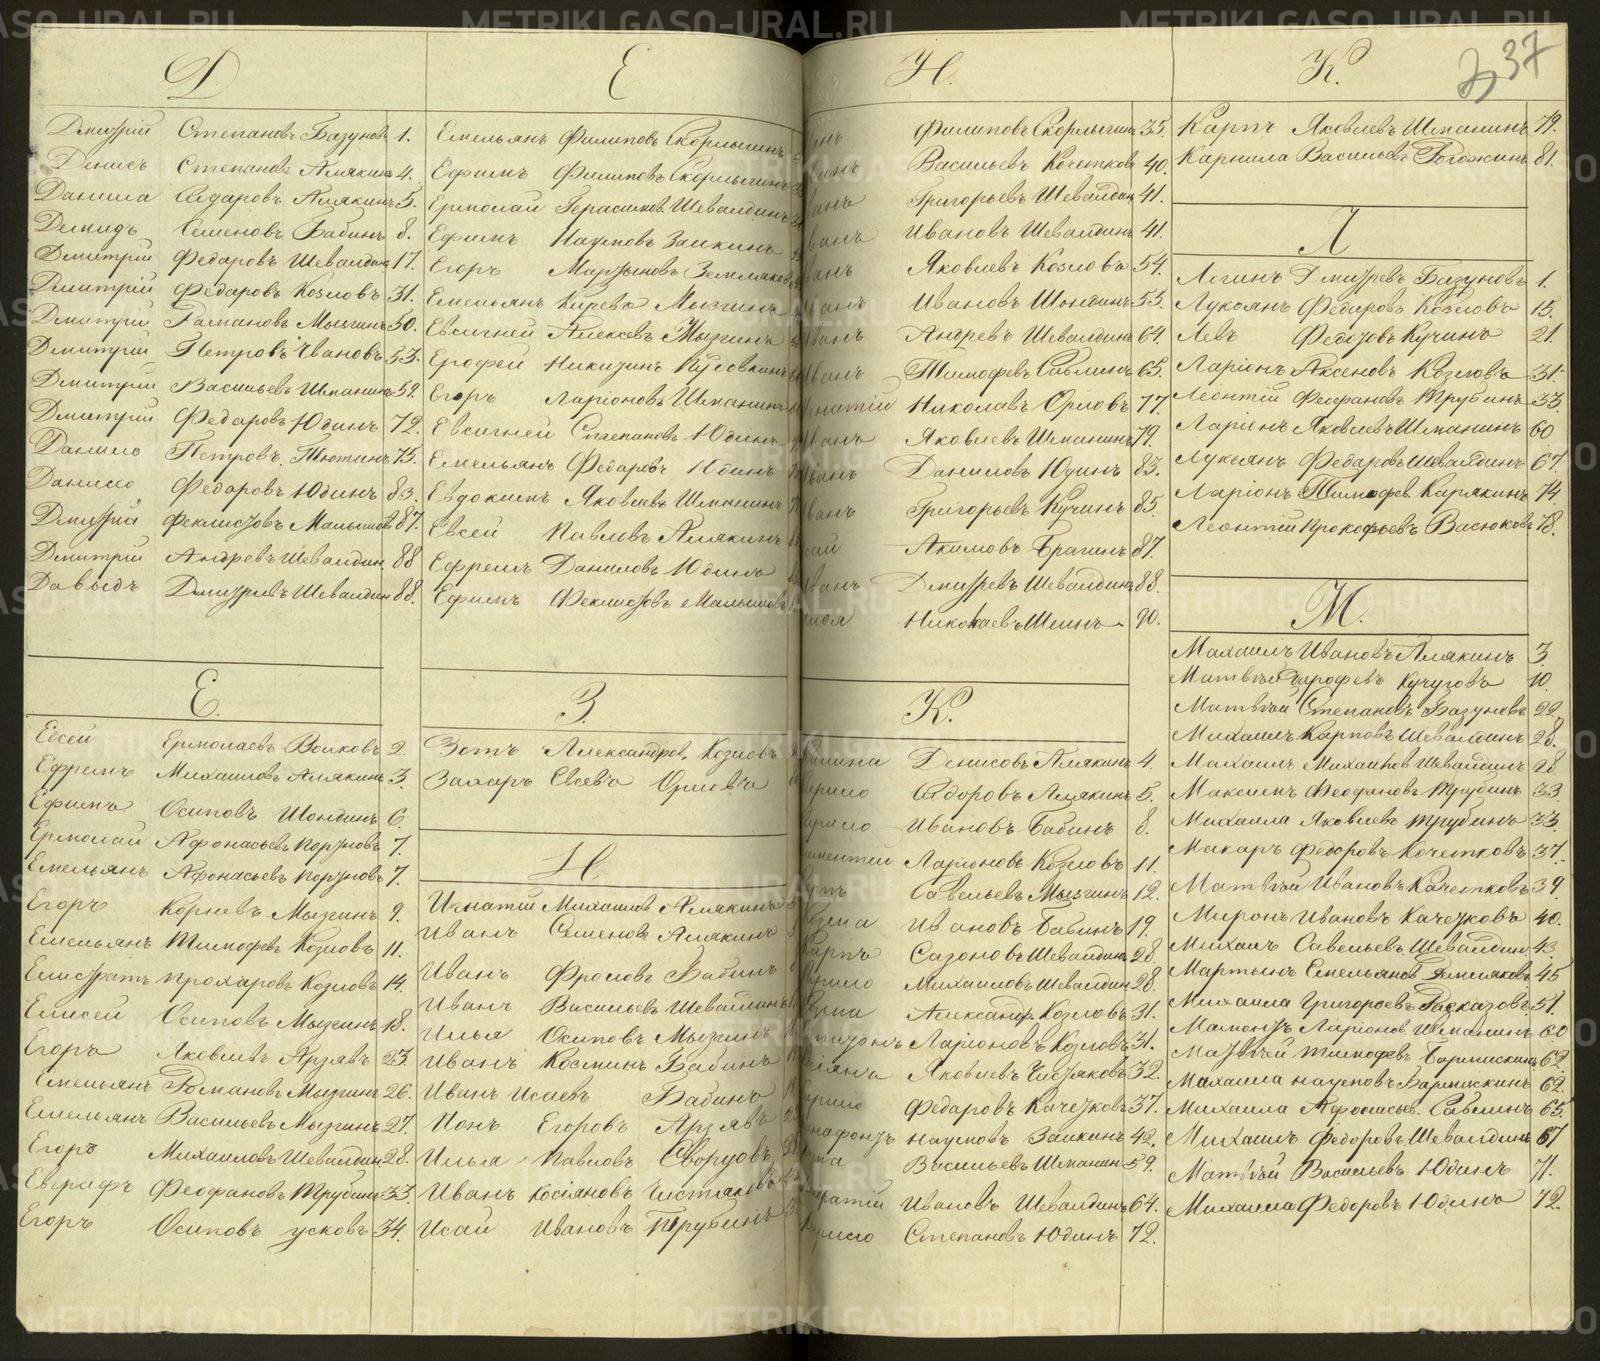 Д
Дмитрій Степановъ Базуновъ 1.
Денисъ Степановъ Алякинъ 4.
Данила Сидаровъ Алякинъ 5.
Демидъ Семеновъ Бабинъ 8.
Дмитрій Федаровъ Шевалдинъ 17.
Дмитрій Федаровъ Козловъ 31.
Дмитрій Рамановъ Мызгинъ 50.
Дмитрій Петровъ Ивановъ 53.
Дмитрій Васильевъ Шманинъ 59.
Дмитрій Федаровъ Юдинъ 72.
Данило Петровъ Тютинъ 75.
Данило Федаровъ Юдинъ 83.
Дмитрій Феклистовъ Малышовъ 87.
Дмитрій Андревъ Шевалдин 88
Давыдъ Дмитріевъ Шевалдин 88.
Е.
Евсей Ермолаевъ Волковъ 2.
Ефремъ Михаиловъ Алякинъ 3.
Ефимъ Осиповъ Шондинъ 6.
Ермолай Афонасьевъ Портновъ 7.
Емельянъ Афонасьевъ Портновъ 7.
Егоръ Корневъ Мызгинъ 9.
Емельянъ Тимофевъ Козловъ 11.
Елистратъ Прохаровъ Козловъ 14.
Елисей Осиповъ Мызгинъ 18.
Егоръ Яковлевъ Арзявъ 23.
Емельянъ Романовъ Мызгинъ 26.
Емельянъ Васильевъ Мызгинъ 27.
Егоръ Михаиловъ Шевалдин 28.
Евграфъ Феофановъ Трубинъ 33.
Егоръ Осиповъ усковъ 34.
Е
Емельянъ Филиповъ Скорлыгинъ
Ефимъ Филиповъ Скорлыгинъ
Ермолай Герасимов Шевалдинъ
Ефимъ Наумовъ Заикинъ
Егоръ Мартыновъ Земляковъ
Емельянъ Киревъ Мызгинъ
Евсигней Алексевъ Мызгинъ
Ерофей Никитинъ Кудовкинъ
Егоръ Ларионовъ Шманинъ
Евсигней Степановъ Юдинъ
Емельянъ Федаровъ Юдинъ
Евдокимъ Яковлевъ Шманинъ
Евсей Павловъ Алякинъ
Ефремъ Даниловъ Юдинъ
Ефимъ Феклистовъ Малышовъ
З.
Зотъ Александров. Козловъ
Захаръ Евсевъ Орловъ
И
Игнатій Михаилов Алякинъ
Иванъ Семеновъ Алякинъ
Иванъ Фроловъ Бабинъ
Иванъ Васильевъ Шевалдинъ
Илья Осиповъ Мызгинъ
Иванъ Козминъ Бабинъ
Иванъ Исаевъ Бабинъ
Іонъ Егоровъ Арзявъ
Илья Павловъ Сворцовъ
Иванъ Косіяновъ Чистяковъ
Исаи Ивановъ Трубинъ
И.
Филиповъ Скорлыгинъ 35.
Васильевъ Кочетковъ 40.
Григорьевъ Шевалдин 41.
Ивановъ Шевалдинъ 41.
Яковлевъ Козловъ 54.
Ивановъ Шондинъ 55.
Андревъ Шевалдинъ 64.
Тимофевъ Савлинъ 65.
Николавъ Орловъ 77.
Яковлевъ Шманинъ 79.
Даниловъ Юдинъ 83.
Григорьевъ Кучинъ 85.
Акимовъ Брагинъ 87.
Дмитревъ Шевалдинъ 88.
Николаевъ Шеинъ 90.
К.
Денисовъ Алякинъ 4.
Сидоровъ Алякинъ 5.
Ивановъ Бабинъ 8.
Ларионовъ Козловъ 11.
Савельевъ Мызгинъ 12.
Ивановъ Бабинъ 19.
Сазоновъ Шевалдинъ 28.
Михаиловъ Шевалдин 28.
Александр. Козловъ 31.
Ларіоновъ Козловъ 31.
Яковлевъ Чистяковъ 32.
Федаровъ Качетковъ 37.
Наумовъ Заикинъ 42.
Васильевъ Шманин 59.
Ивановъ Шевалдинъ 64.
Степановъ Юдинъ 72.
К. 37
Карпъ Яковлевъ Шманинъ 79.
Карнила Васильевъ Рогожкинъ 81.
Л
Логинъ Дмитревъ Базуновъ 1.
Лукоянъ Федаровъ Козловъ 15.
Левъ Федотовъ Кучинъ 21.
Ларіонъ Аксеновъ Козловъ 31.
Леонтій Феофановъ Трубинъ 33.
Ларіонъ Яковлевъ Шманинъ 60
Лукоянъ Федаровъ Шевалдинъ 67.
Ларіонъ Тимофев. Карякинъ 74
Леонтій Прокофьевъ Васюковъ 78.
М.
Махаилъ Ивановъ Алякинъ 3.
Матвѣй Дарофевъ Кучуговъ 10.
Матвѣй Степановъ Базуновъ 22.
Михаилъ Карповъ Шевалдинъ 28.
Махаилъ Михаиловъ Шевалдинъ 28
Максимъ Феофановъ Трубинъ 33.
Михаила Яковлевъ Трубинъ 33.
Макаръ Федоровъ Кочетковъ 37.
Матвѣй Ивановъ Качетковъ 39
Миронъ Ивановъ Качетковъ 40.
Михаилъ Савельевъ Шевалдин 43.
Мартынъ Емельянов Земляковъ 45
Михаила Григоровъ Расказовъ 51.
Мамонтъ Ларіонов Шманинъ 60
Матвѣй Тимофевъ Бармискинъ 62.
Михаила Наумовъ Бармискинъ 62.
Михаила Афонасьев. Савелинъ 65.
Михаилъ Федоровъ Шевалдинъ 67
Матвѣй Васильевъ Юдинъ 71.
Михаила Федоровъ Юдинъ 72.
METRIKI.GASO-URAL.RU